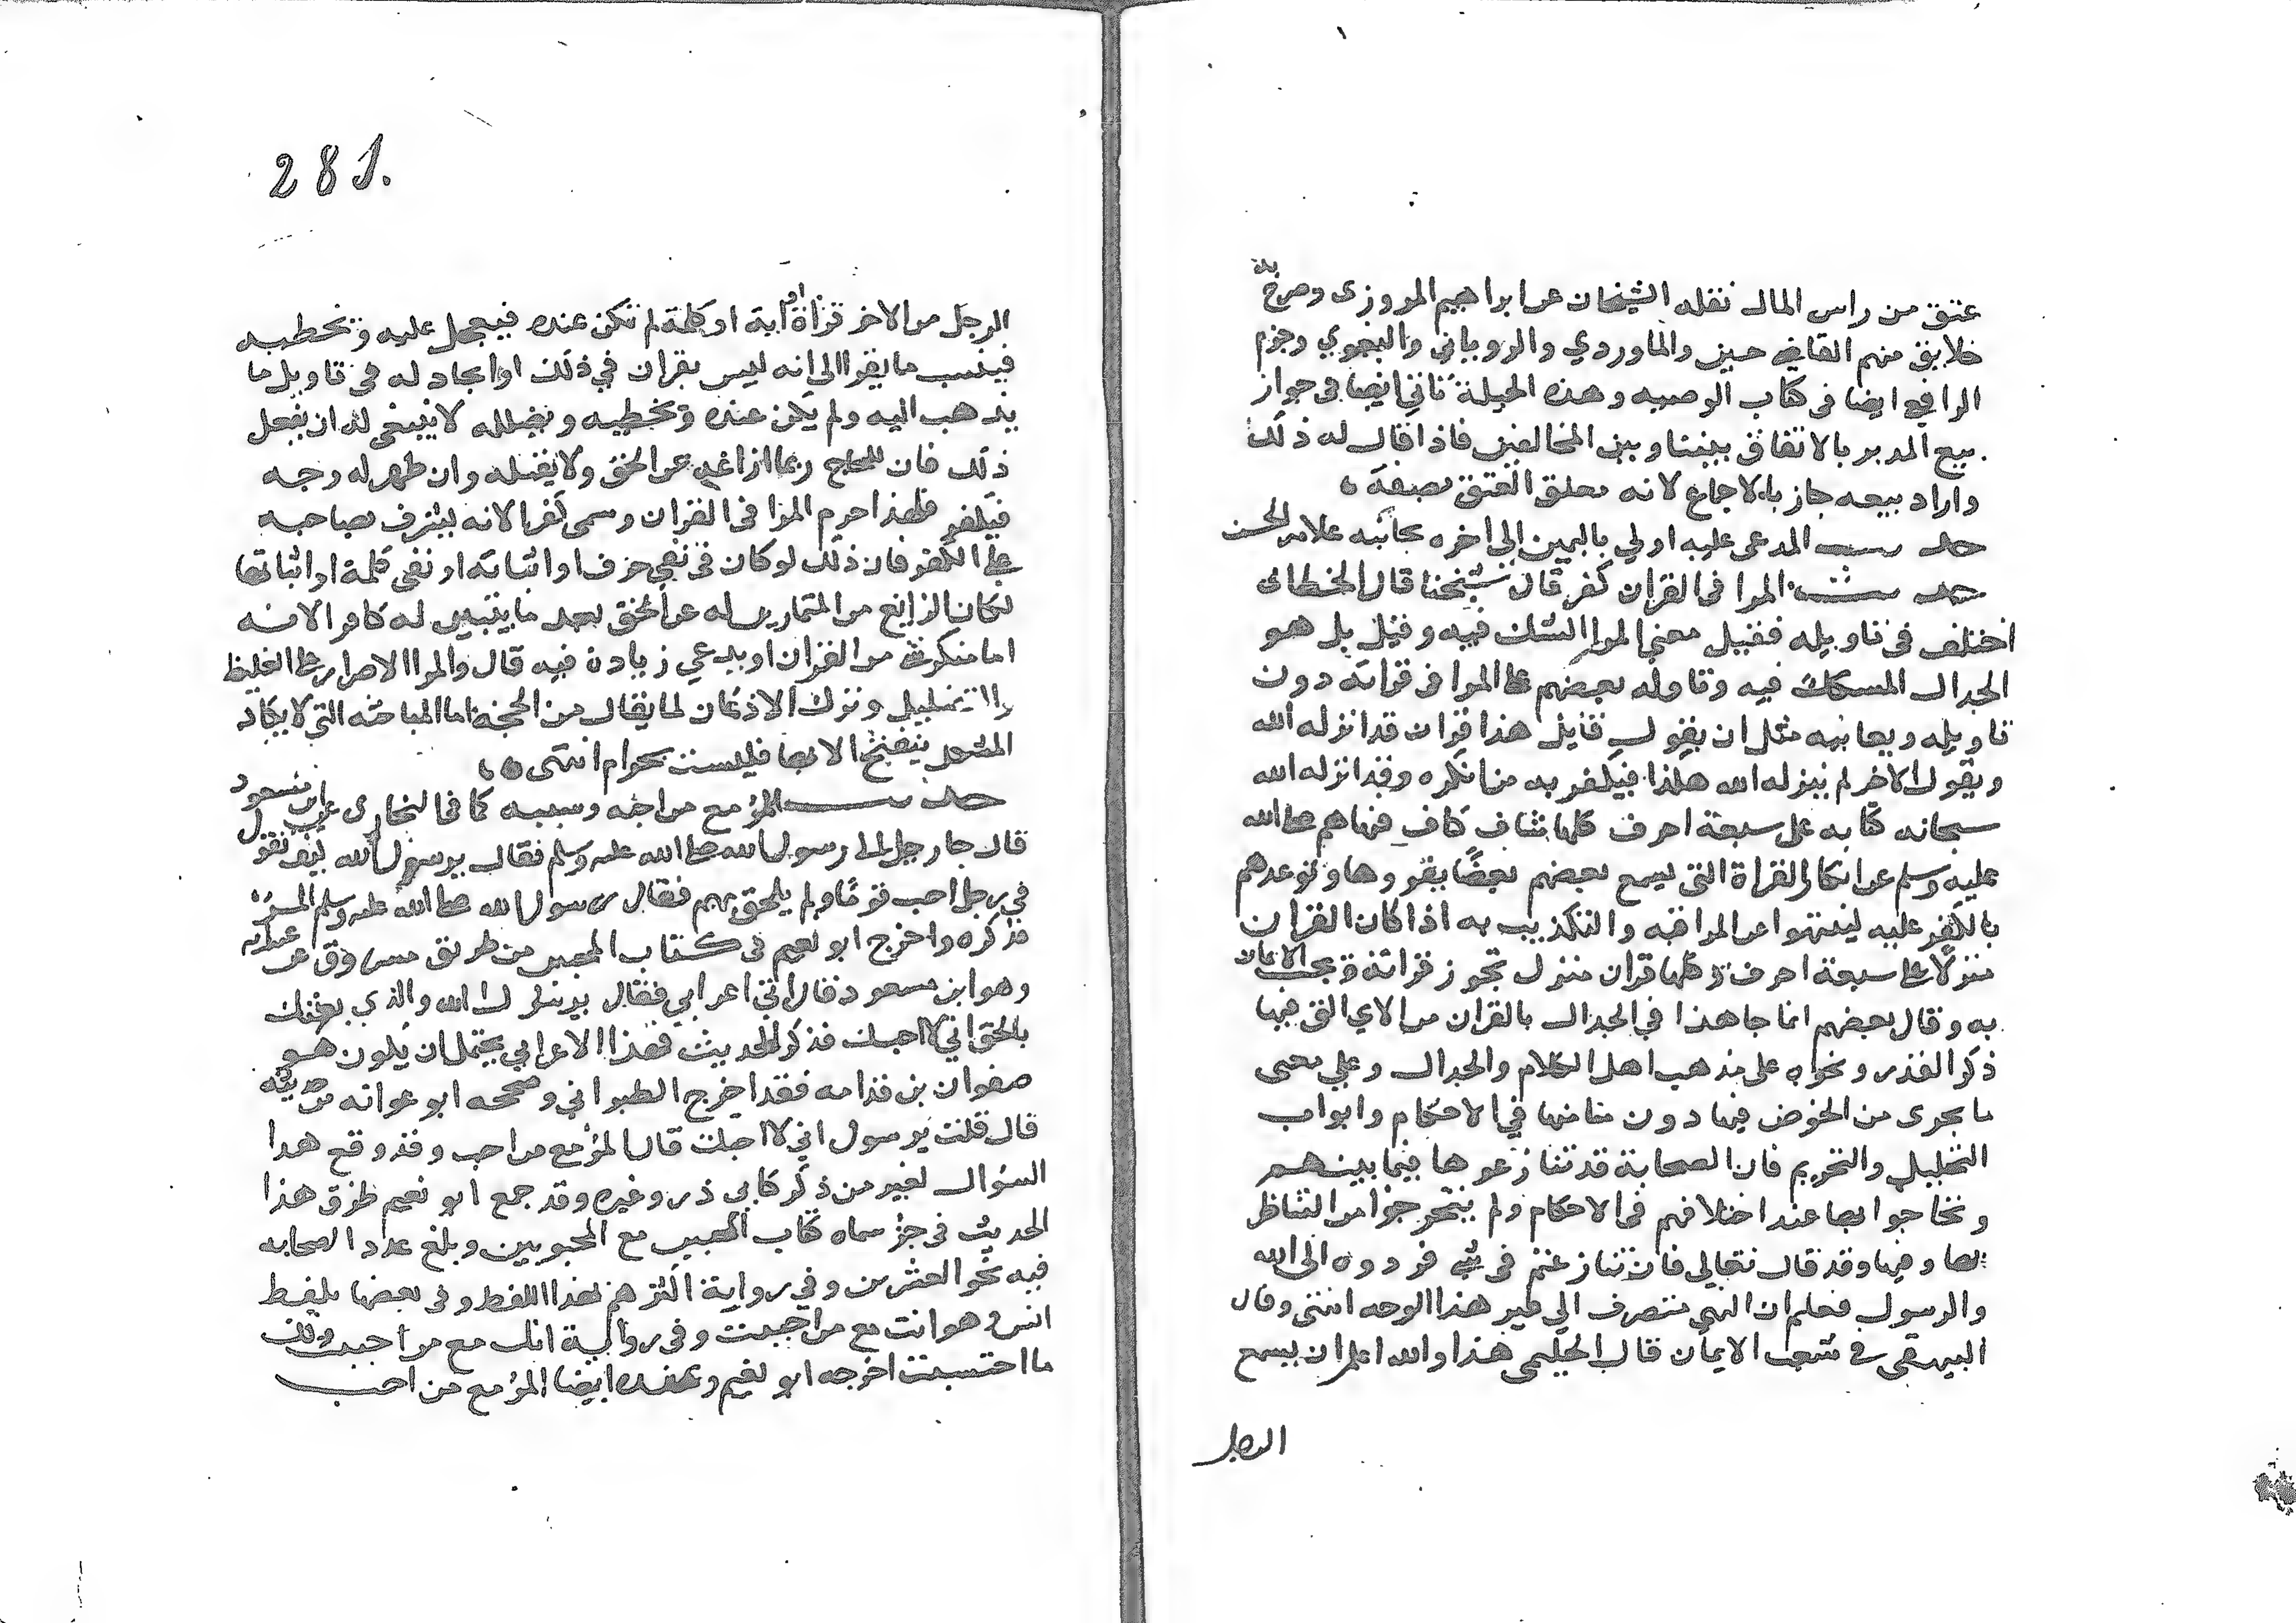 عتق من راس المال نقله الشيخان عن ابراهيم المروزى وصرح به
خلايق منهم القاضي حسين والماوردي والروياني والبغوي وجزم
الرافعي ايضا فى كتاب الوصيه وهذه الحيلة تاتي ايضا فى جواز
بيع المدبر بالاتفاق بيننا وبين المخالفين فاذا قال له ذلك
واراد بيعه جاز بالاجماع لانه معلق العتق بصفة
حديث المدعى عليه اولي باليمين الى اخره بجانبه علامة الحسن
حديث المرا فى القران كفر قال شيخنا قال الخطابى
اختلف فى تاويله فقيل معنى المرا الشك فيه وقيل بل هو
الجدال المشكك فيه وتاوله بعضهم على المرا فى قراته دون
تاويله ومعانيه مثل ان يقول قايل هذا قران قد انزله الله
ويقول الاخر لم ينزله الله هكذا فيكفر به من انكره وقد انزله الله
سبحانه كتابه على سبعة احرف كلها شاف كاف فنهاهم صلى الله
عليه وسلم عن انكار القراة التى يسمع بعضهم بعضا يقروها وتوعدهم
بالكفر عليه لينتهوا عن المرا فيه والتكذيب به اذا كان القران
منزلا على سبعة احرف وكلها قران منزل تجوز قراته ويجب الايمان
به وقال بعضهم انما جا هذا في الجدال بالقران من الاي التى فيها
ذكر القدر ونحوه على مذهب اهل الكلام والجدال وعلي معنى
ما يجرى من الخوض فيها دون ما منها في الاحكام وابواب
التحليل والتحريم فان الصحابة قد تنازعوها فيما بينهم
وتحاجوا بها عند اختلافهم فى الاحكام ولم يتحرجوا من التناظر
بها وفيها وقد قال تعالى فان تنازعتم فى شي فردوه الى الله
والرسول فعلم ان النهي منصرف الى غير هذا الوجه انتهى وقال
البيهقى في شعب الايمان قال الحليمى هذا والله اعلم ان يسمع
الرجل
281.
الرجل من الاخر قراة او اية او كلمة لم تكن عنده فيعجل عليه ويخطيه
فينسب ما يقرا الى انه ليس بقران في ذلك او يجادله فى تاويل ما
يذهب اليه ولم يكن عنده ويخطيه ويضلله لا ينبغى له ان يفعل
ذلك فان اللجاج ربما ازاغه عن الحق ولا يقبله وان ظهر له وجه
فيكفر فلهذا حرم المرا فى القران وسمى كفرا لانه يشرف بصاحبه
على الكفر فان ذلك لو كان فى نفي حرف او اثباته او نفى كلمة او اثباتها
لكان الزايغ من المتماريين له عن الحق بعد ما يتبين له كافرا لانه
اما منكر شى من القران او يدعي زيادة فيه قال والمرا الاصرار على الغلظ
والتضليل وترك الاذعان لما يقال من الحجة اما المباحثه التي لا يكاد
المشكل ينفتح الا بها فليست بحرام انتهى
حديث المرؤ مع من احبه وسببه كما فى البخارى عن ابن مسعود
قال جا رجل الى رسول الله صلى الله عليه وسلم فقال يرسول الله كيف تقول
في رجل احب قوما ولم يلحق بهم فقال رسول الله صلى الله عليه وسلم المرؤ
فذكره واخرج ابو نعيم فى كتاب المحبين من طريق مسروق عن عبد الله
وهو ابن مسعود قال اتى اعرابي فقال يرسول الله والذي بعثك
بالحق اني لاحبك فذكر الحديث فهذا الاعرابي يحتمل ان يكون هو
صفوان بن قدامه فقد اخرج الطبراني وصححه ابو عوانه من حديثه
قال قلت يرسول اني لاحبك قال المرؤ مع من احب وقد وقع هذا
السؤال لغير من ذكر كابي ذر وغيره وقد جمع ابو نعيم طرق هذا
الحديث فى جز سماه كتاب المحبين مع المحبوبين وبلغ عدد الصحابه
فيه نحو العشرين وفي رواية اكثرهم بهذا اللفظ وفى بعضها بلفظ
انس وهو انت مع من احببت وفى رواية انك مع من احببت ولك
ما احتسبت اخرجه ابو نعيم وعنده ايضا المرؤ مع من احب